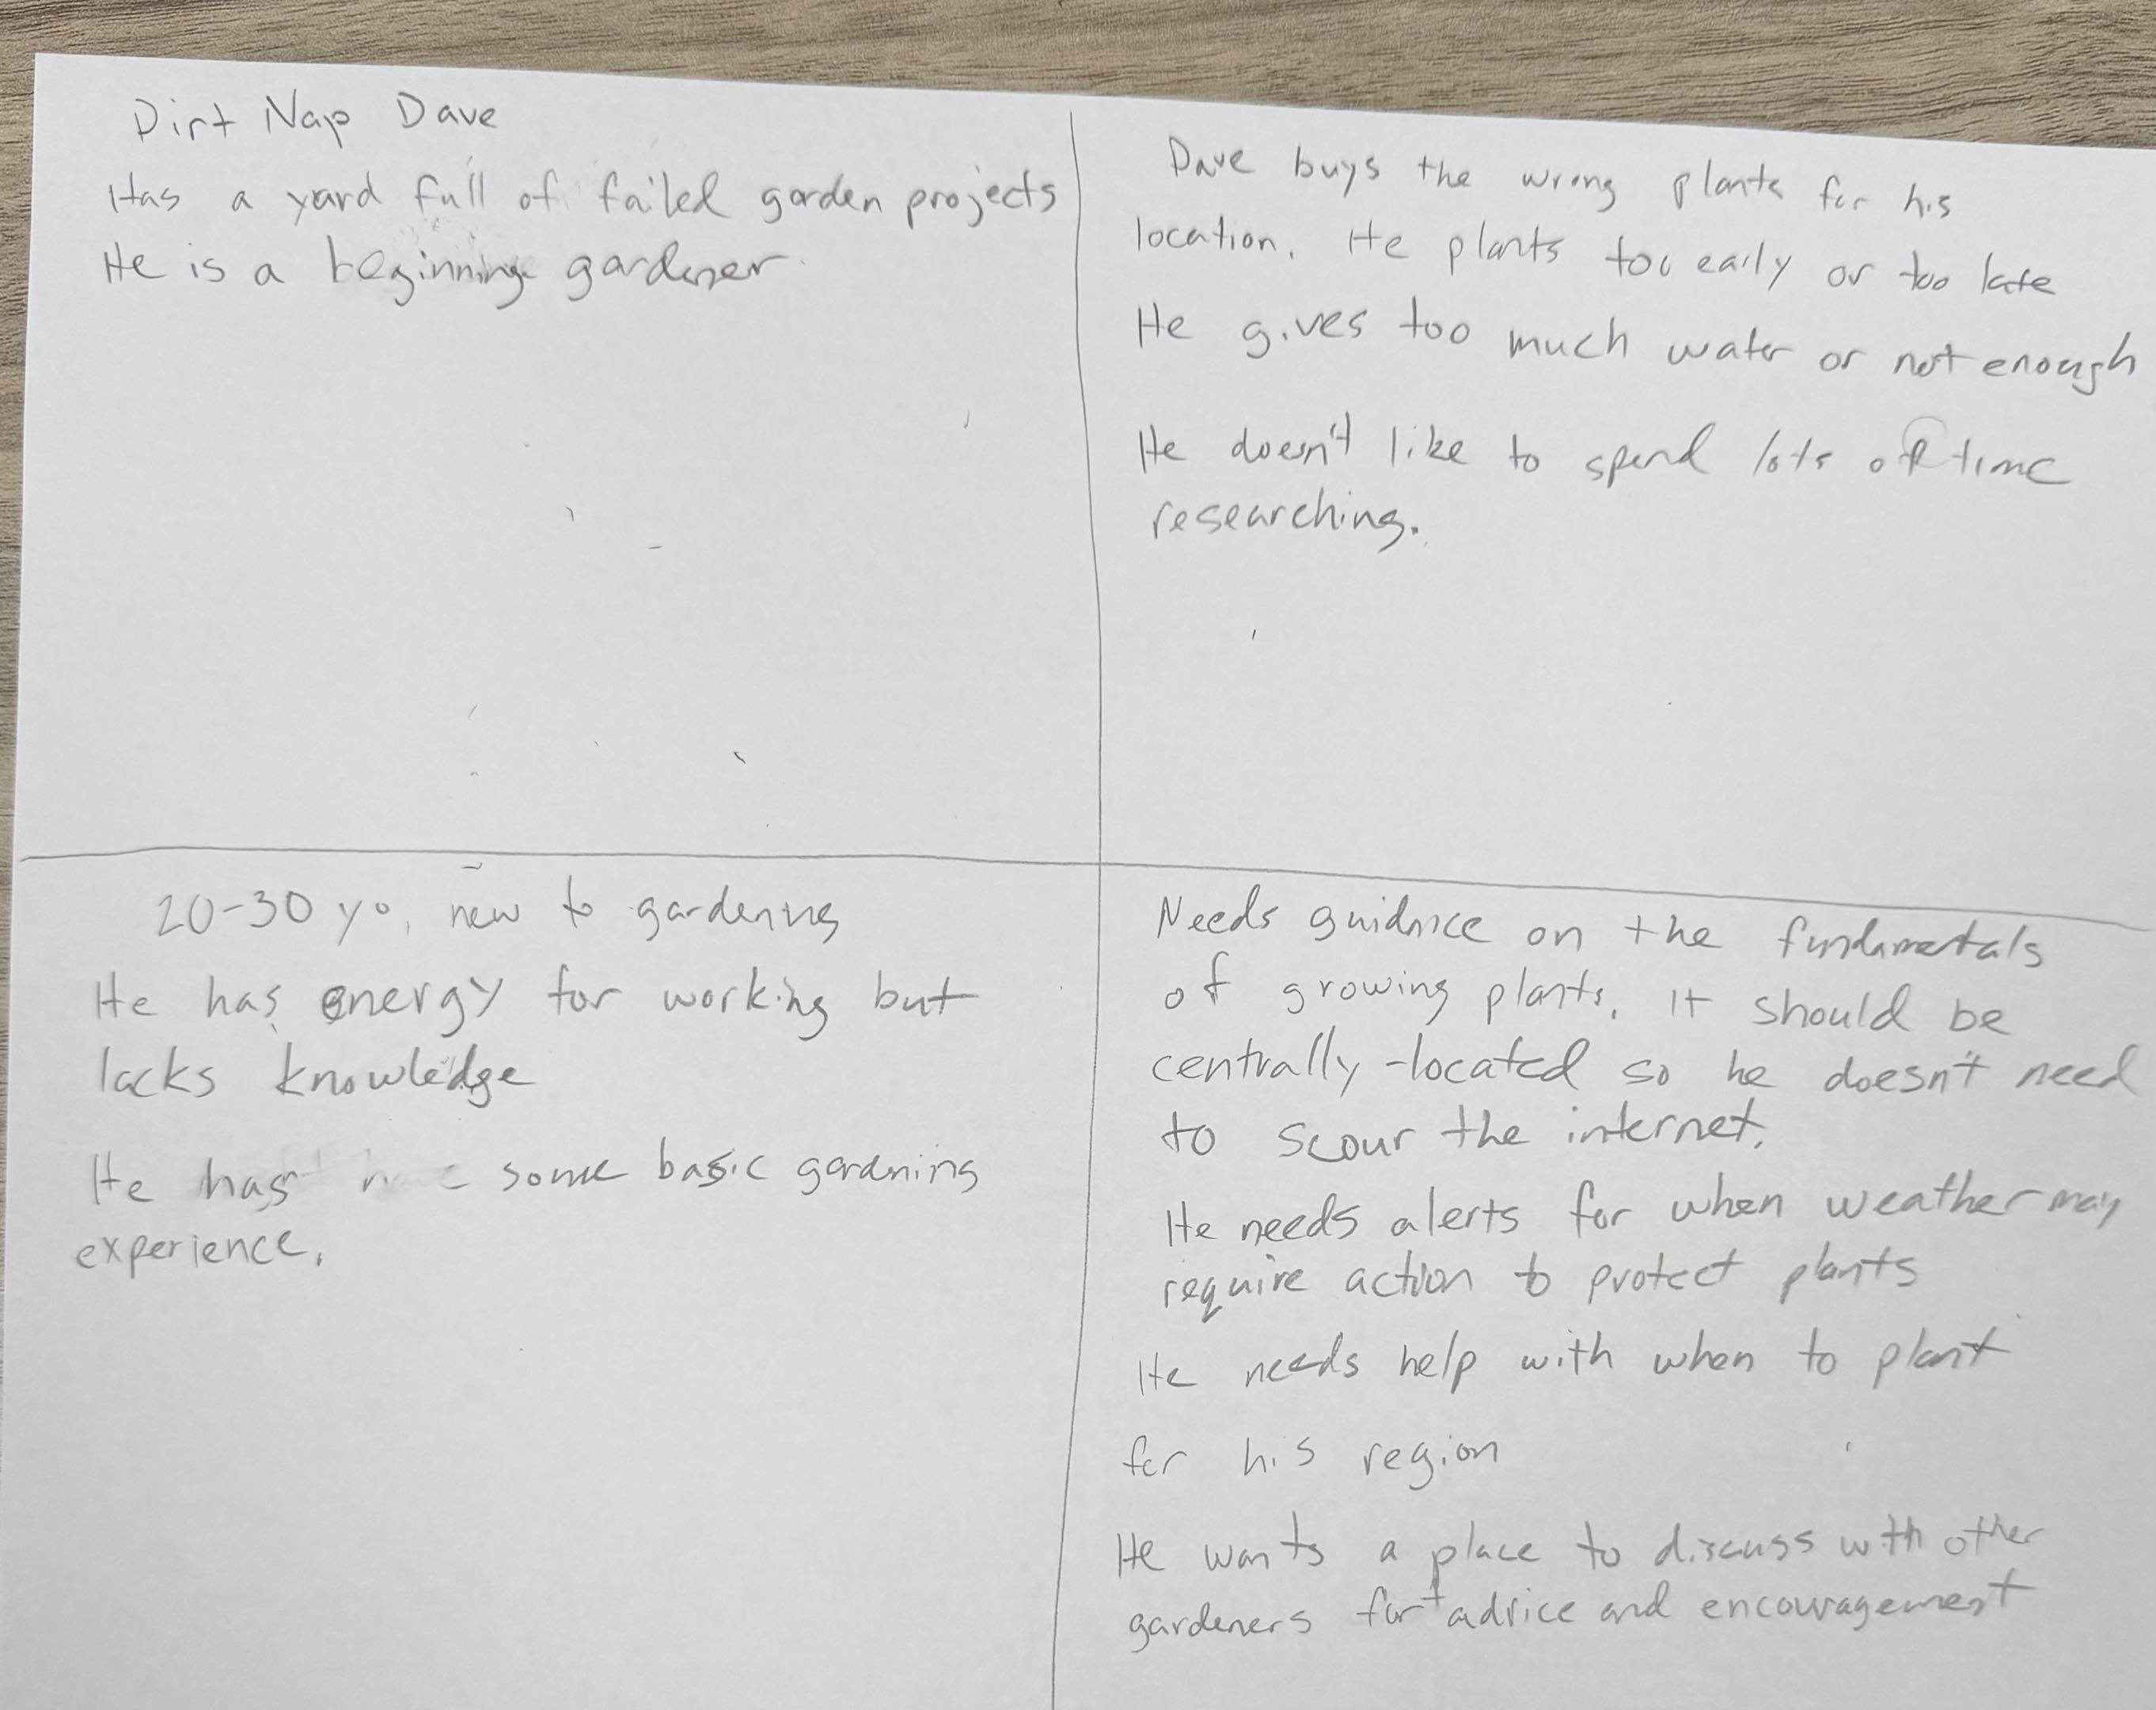 Dirt Nap Dave
Has a yard full of failed garden projects
He is a beginning gardener.
Dave buys the wrong plants for his
location. He plants too early or too late
He gives too much water or not enough
He doesn't like to spend lots of time
researching.
20-30 yo, new to gardening
He has energy for working but
lacks knowledge
He has some basic gardening
experience.
Needs guidance on the fundamentals
of growing plants. It should be
centrally-located so he doesn't need
to scour the internet.
He needs alerts for when weather may
require action to protect plants
He needs help with when to plant
for his region
He wants a place to discuss with other
gardeners for advice and encouragement